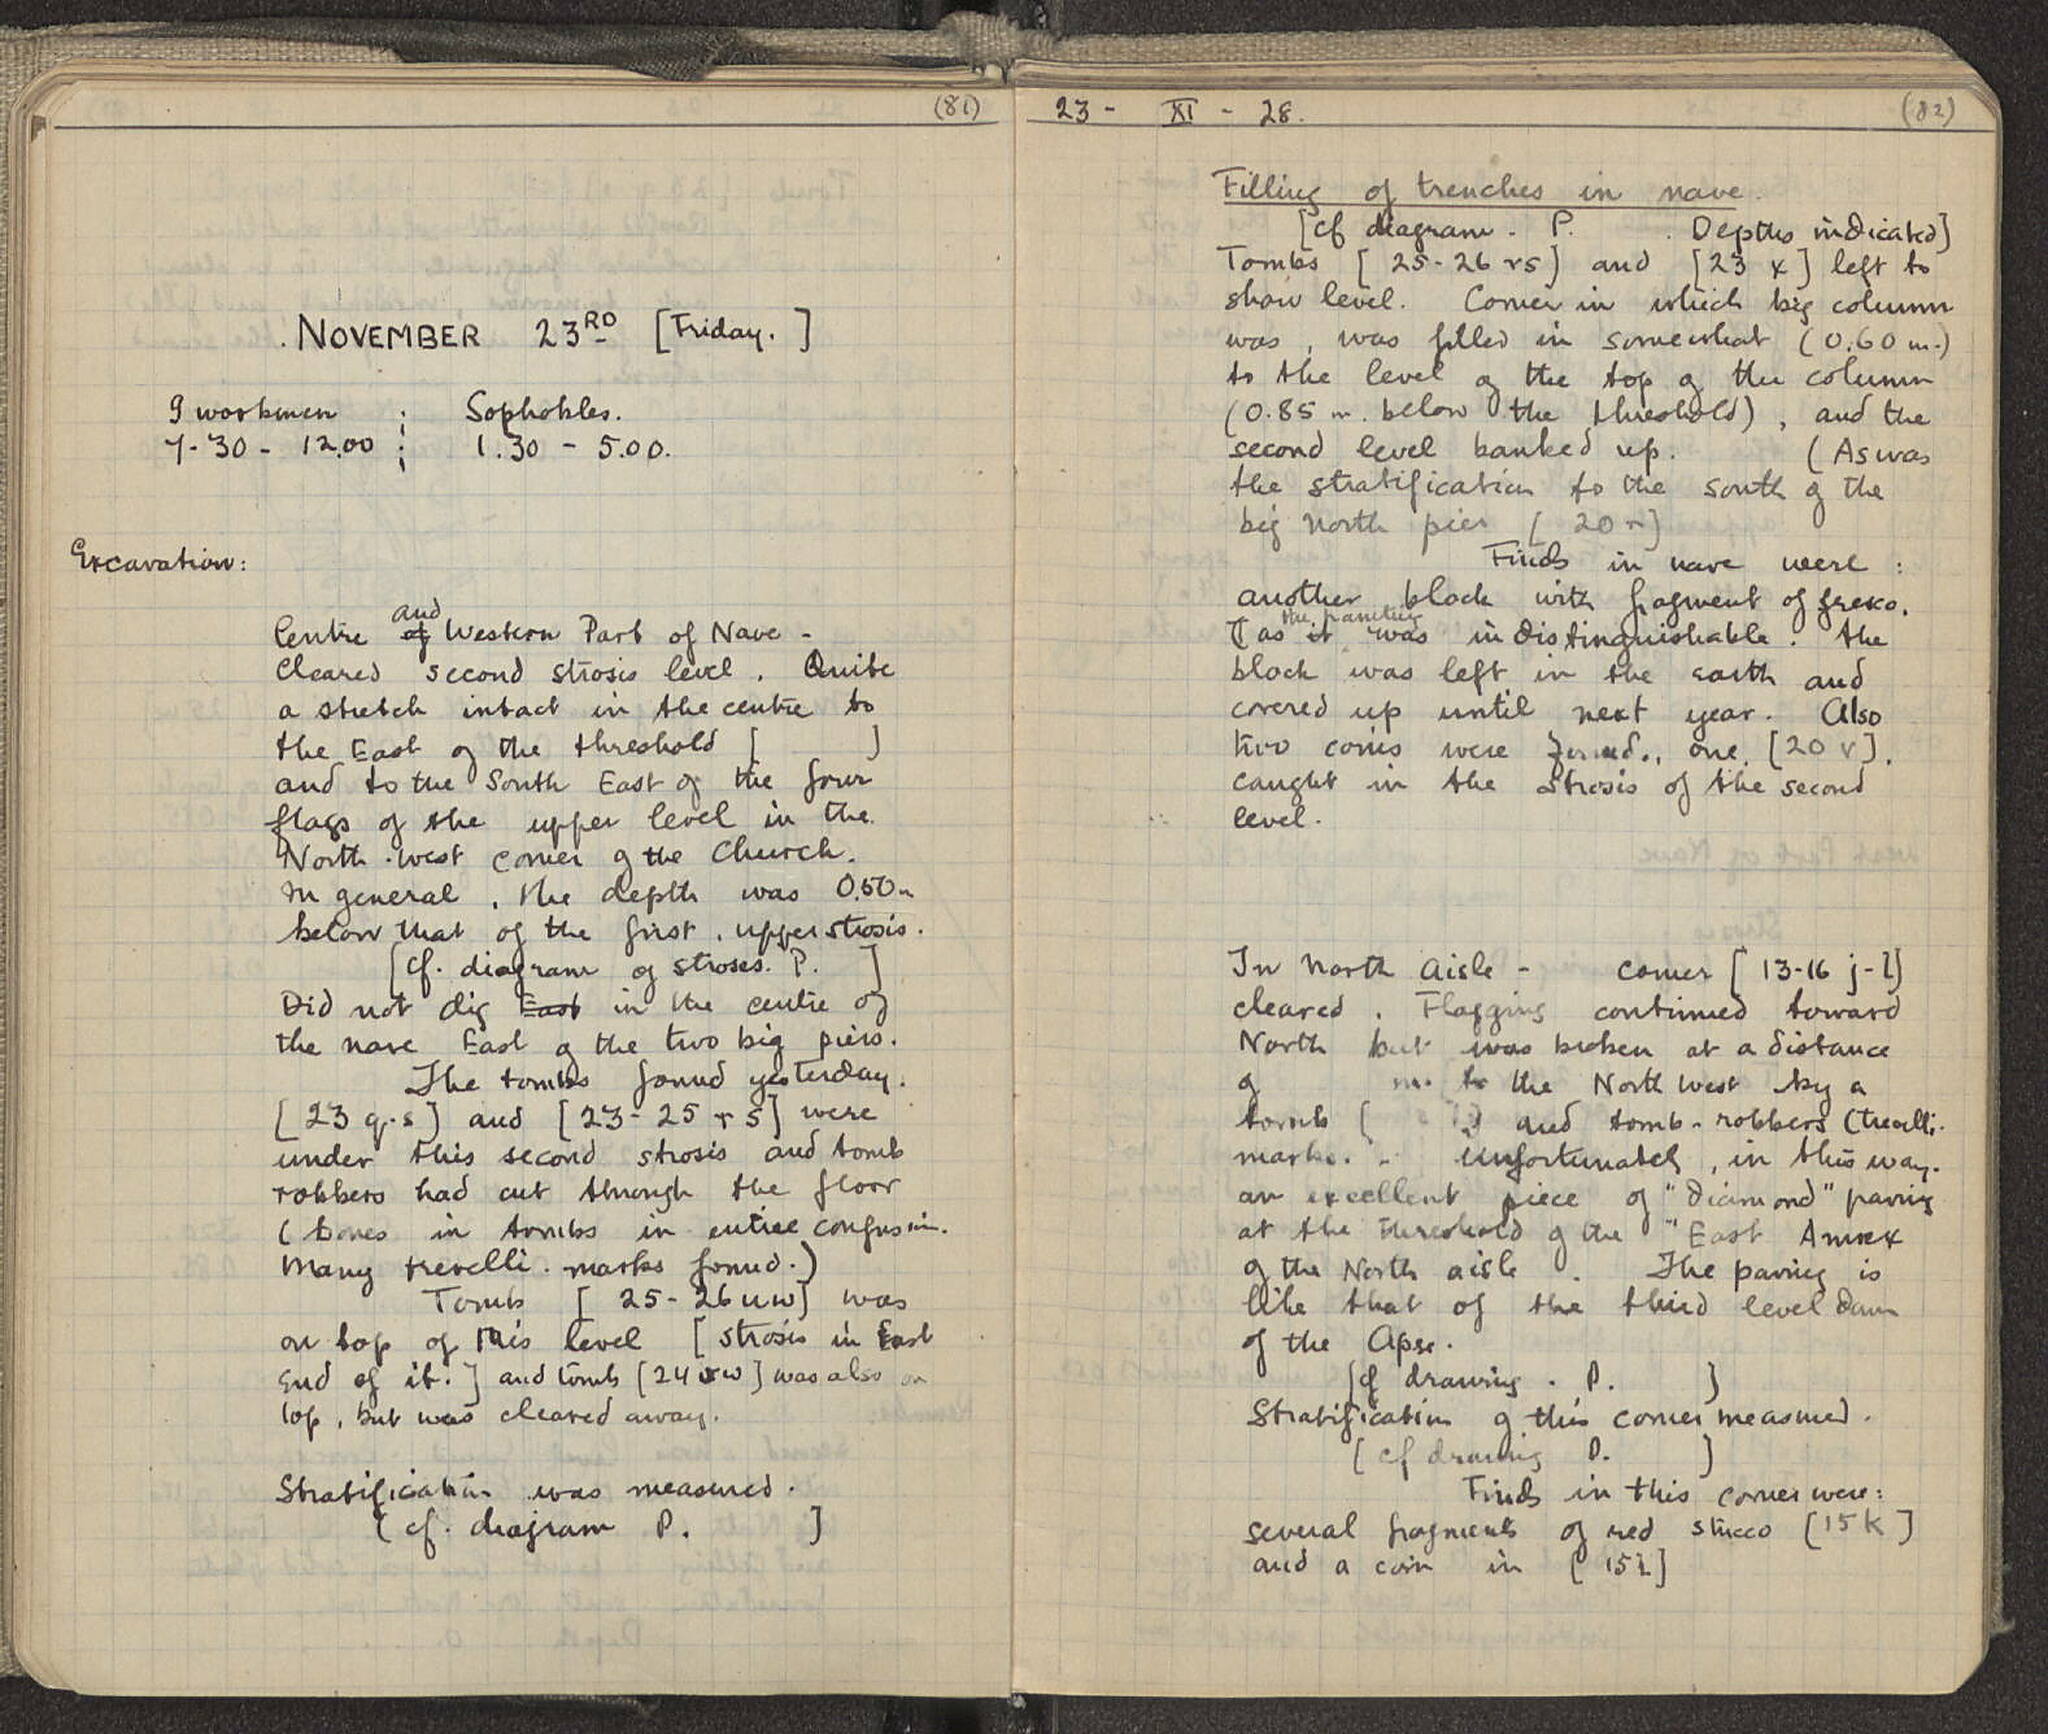 (81)
NOVEMBER 23RD [Friday.]
9 workmen ; Sophokles.
7-30 - 12.00 ; 1.30 - 5.00.
Excavation:
and
Centre of Western Part of Nave -
Cleared second strosis level. Quite
a stretch intact in the centre to
the East of the threshold [ ]
and to the South East of the four
flags of the upper level in the
North-west corner of the Church.
In general, the depth was 0.50m
below that of the first, upper strosis.
[cf. diagram of stroses. P. ]
Did not dig East in the centre of
the nave East of the two big piers.
The tombs found yesterday.
[23 q-s] and [23-25 r s] were
under this second strosis and tomb
robbers had cut through the floor
(bones in tombs in entire confusion.
Many trevelli. marks found.)
Tomb [25-26 u w] was
on top of this level [strosis in East
End of it.] and tomb [24 v w] was also on
top, but was cleared away.
Stratification was measured.
[cf. diagram P. ]
23 - XI - 28.
(82)
Filling of trenches in nave.
[cf diagram - P. Depths indicated]
Tombs [25-26 rs] and [23 x] left to
show level. Corner in which big column
was, was filled in somewhat (0.60 m.)
to the level of the top of the column
(0.85 m. below the threshold), and the
second level banked up. (As was
the stratification to the south of the
big North pier [20 r]
Finds in nave were :
another block with fragment of fresco.
the painting
[as it was indistinguishable. the
block was left in the earth and
covered up until next year. Also
two coins were found., one [20 v],
caught in the strosis of the second
level.
In North Aisle - corner [13-16 j-l]
cleared. Flagging continued toward
North but was broken at a distance
of m. to the North West by a
tomb [ ] and tomb-robbers (trevelli.
marks. - Unfortunately, in this way.
an excellent piece of "diamond" paving
at the threshold of the "East Annex
of the North aisle. The paving is
like that of the third level dam
of the Apse.
[cf drawing. P. ]
Stratification of this corner measured.
[cf drawing P. ]
Finds in this corner were:
several fragments of red stucco [15 K]
and a coin in [15 l]